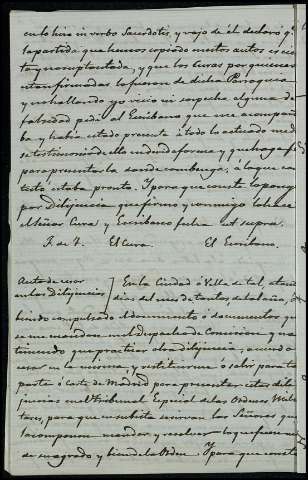 en lo hizo in verbo Sacerdotis, y vajo de él declaró q.e
la partida que hemos copiado en estos autos es cier
ta y no suplantada, y que los Curas por quienes
están firmadas lo fueron de dicha Parroquia
y no hallando yo vicio ni sospecha alguna de
falsedad pedí al Escribano que me acompaña
ba y había estado presente á todo lo actuado me di
ese testimonio de ello en devida forma y que haga fé
para presentarla donde convenga; á lo que con
testó estaba pronto. Y para que conste lo pongo
por Diligencia que firmo y conmigo lo hace
el Señor Cura y Escribano fecha ut supra.
F. de T. El Cura. El Escribano.
Auto de cesar
en las Diligencias
En la Ciudad ó Villa de tal, á tantos
dias del mes de tantos, de tal año, ha
biendo compulsado el documento ó documentos que
se me mandan en el Despacho de Comision y no
teniendo que practicar otra Diligencia, acuerdo
cesar en la misma, y restituirme ó salir para tal
parte ó Corte de Madrid para presentar estas dili
gencias en el Tribunal Especial de las Ordenes Mili
tares, para que en su vista se sirvan los Señores que
lo componen mandar y resolver lo que fuere
de su agrado y bien de la Orden. Y para que conste